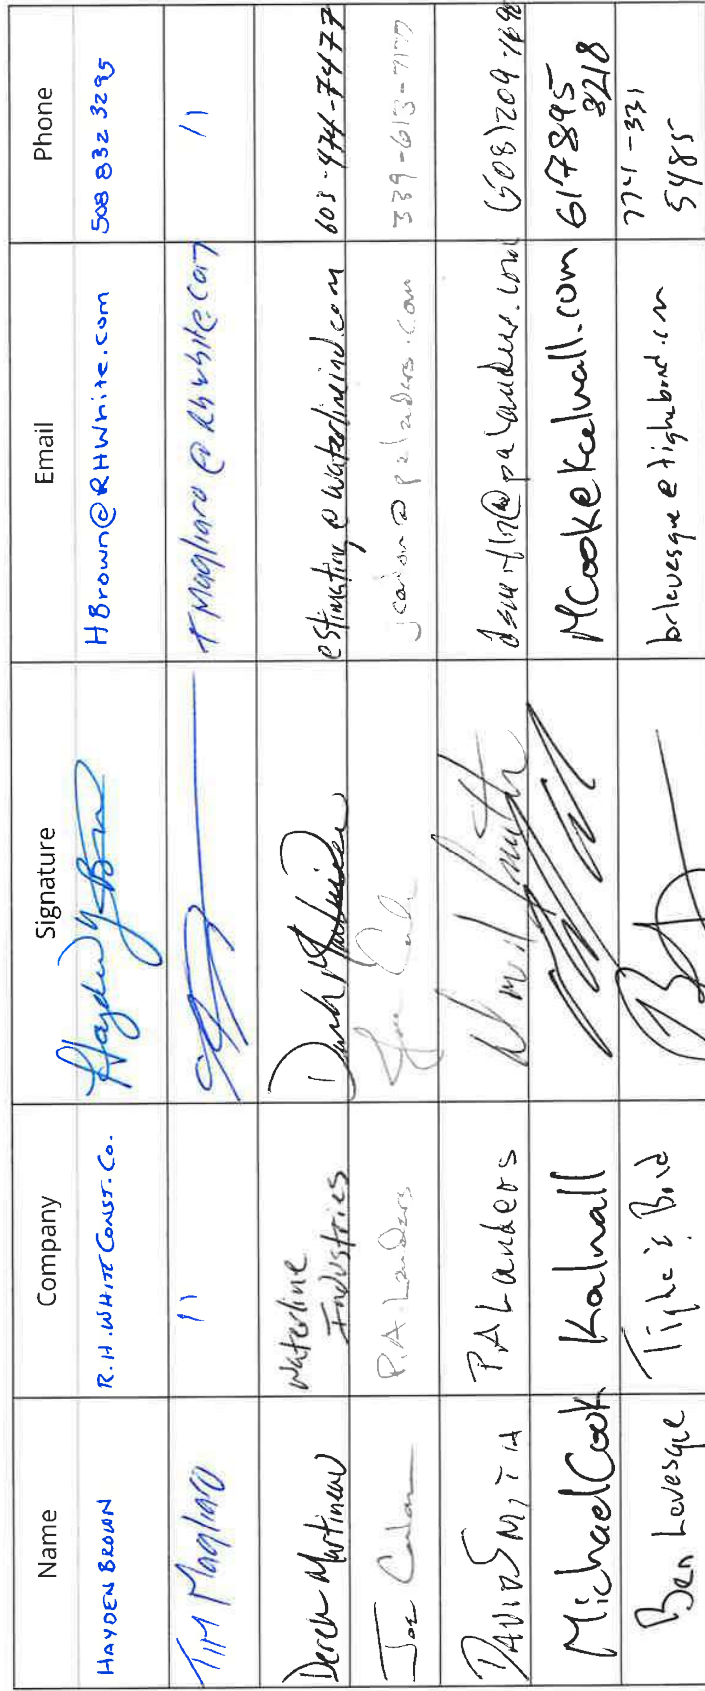 Name Company Signature Email Phone
HAYDEN BROWN R.H. WHITE CONST. CO. HBrown@RHWhite.com 508 832 3295
TIM Magliaro 11 TMagliaro@Rhwhite.com 11
Derek Martineau Waterline Industries estimating@waterlineind.com 603-474-7477
Joe P.A. Landers @palanders.com 339-613-7177
DAVID SMITH P.A Landers @palanders.com (508)209-
Michael Cook Kalwall MCook@Kalwall.com 617 895 3218
Ben Levesque Tighe & Bond blevesque@tighebond.com 774-331 5485